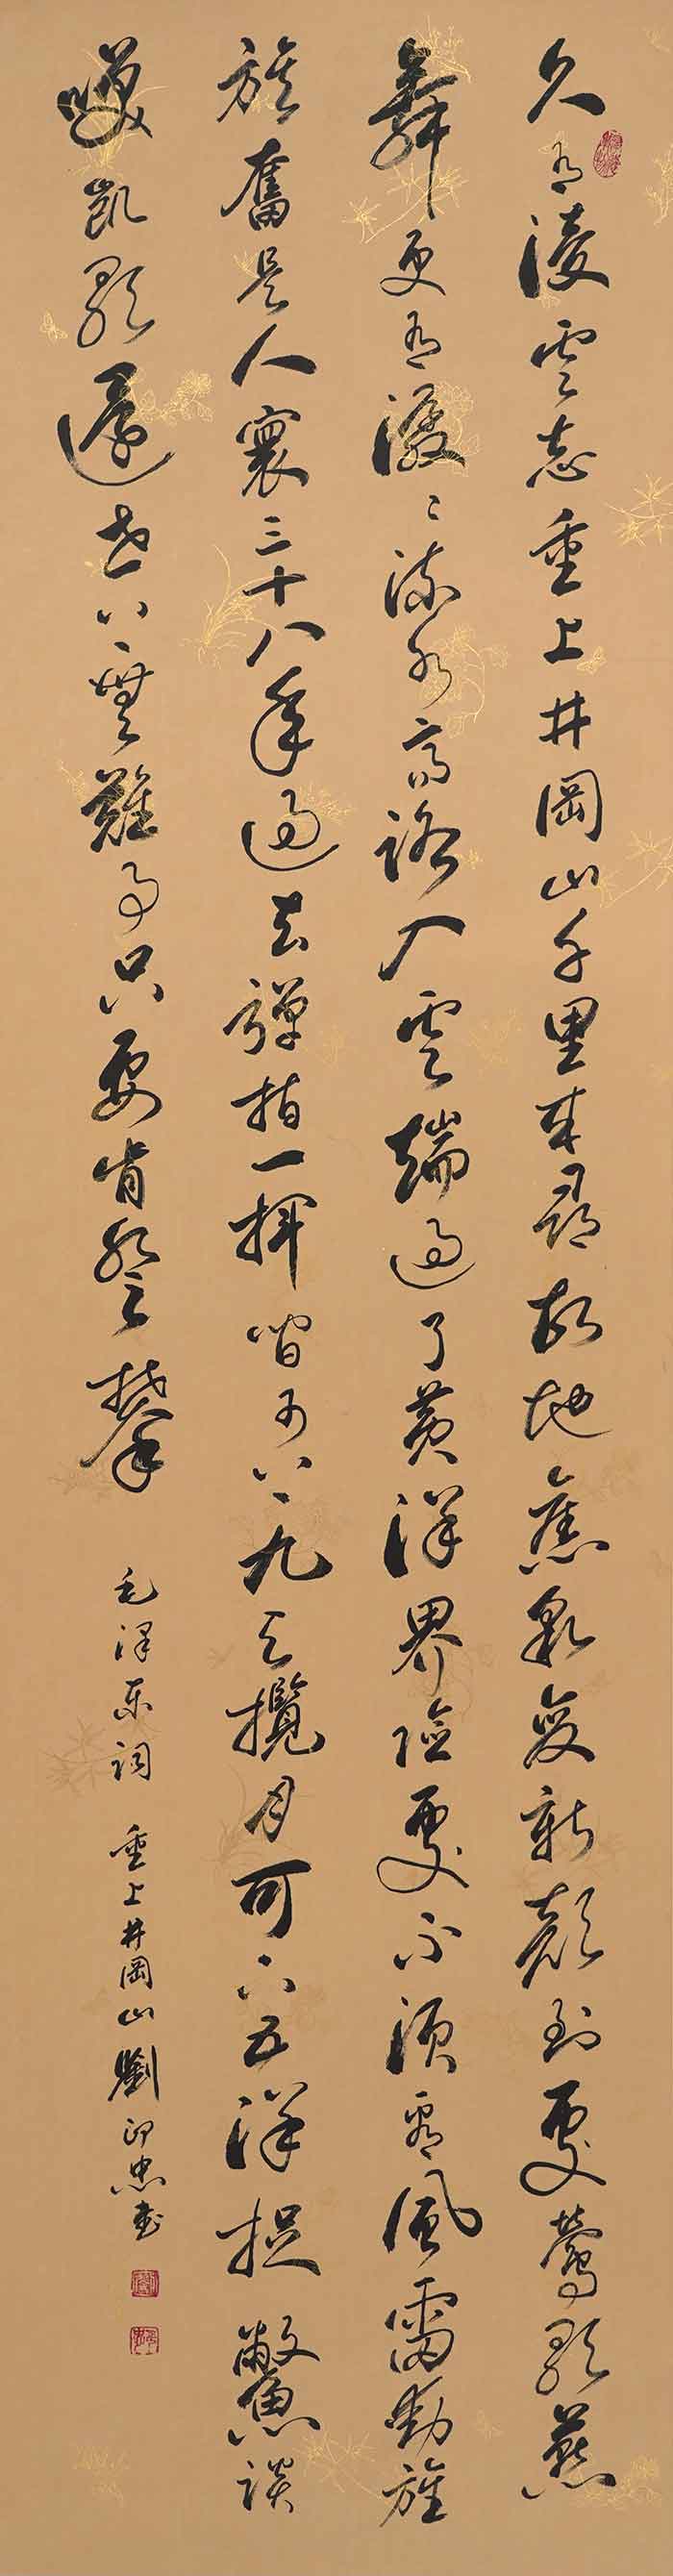 久有淩雲志重上井岡山千里来尋故地舊皃變新顔到處鶯歌燕
舞更有潺〻流水高路入雲端過了黄洋界險處不須看風雷動旌
旗奮是人寰三十八年過去彈指一揮間可上九天攬月可下五洋捉鱉談
笑凱歌還世上無難事只要肯登攀 毛澤東詞 重上井岡山劉印忠書